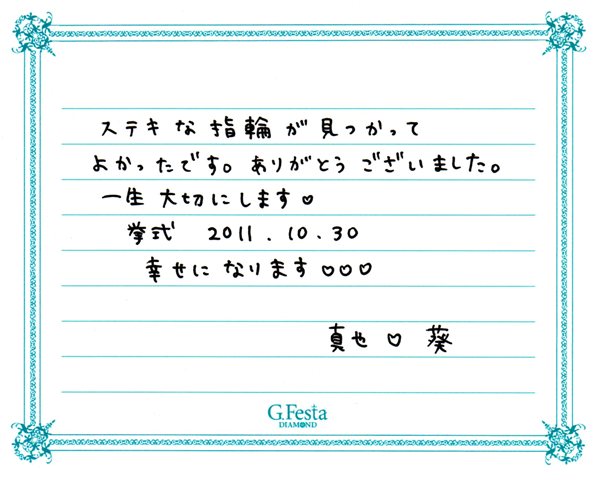 ステキな指輪が見つかって
よかったです。ありがとうございました。
一生大切にします♡
挙式 2011.10.30
幸せになります♡♡♡
真也♡葵
G.Festa
DIAMOND